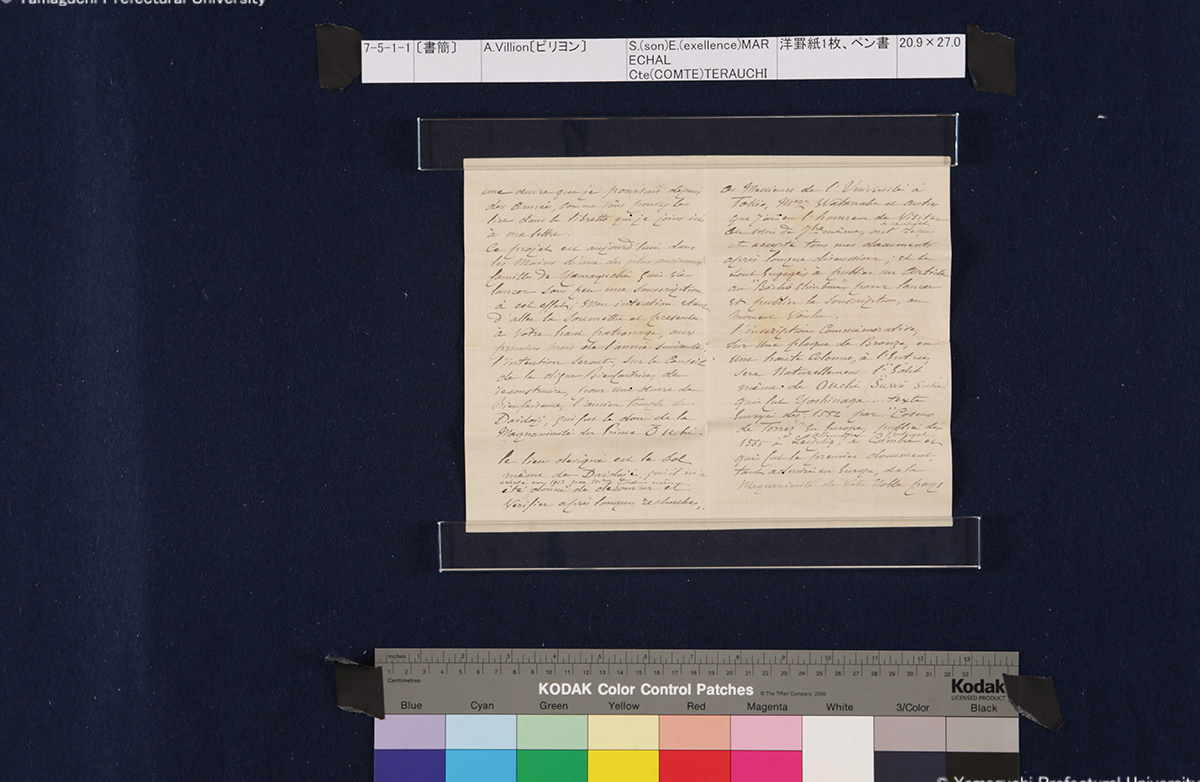 © Yamaguchi Prefectural University
7-5-1-1
〔書簡〕
A.Villion〔ビリヨン〕
S.(son)E.(exellence)MAR
ECHAL
Cte(COMTE)TERAUCHI
洋罫紙1枚、ペン書
20.9×27.0
une œuvre que je poursuis depuis
des Années, comme vous pouvez le
lire dans le libretto que je joins ici
à ma lettre.
Ce projet est aujourd'hui dans
les Mains d'une des plus anciennes
famille de Yamaguchi qui va
lancer sous peu une souscription
à cet effet; Mon intention étant
d'aller la soumettre et présenter
à Votre haut patronage, aux
premiers mois de l'année suivante,
l'intention serait, sur le Conseil
de la digne bienfaitrice, de
reconstruire, pour une œuvre de
Bienfaisance, l'ancien temple de
Daidoji, qui fut le don de la
Magnanimité du Prince Ouchi.
le lieu désigné est le Sol
même de Daidoji, qu'il m'a
été donné de découvrir et
Vérifier après longues recherches,
Ces Messieurs de l'Université à
Tokio, Watanabe et autre
que j'ai eu l'honneur de Visiter
au Mois de 7bre même, ont
et accepté tous mes documents
après longue discussion; et se
sont engagés à publier un Article
au "Bocho Shinbun" pour lancer
et publier la souscription, au
moment voulu.
l'inscription Commémorative,
sur une plaque de Bronze, ou
une haute Colonne, à l'Entrée,
sera Naturellement l'Edit
même de Ouchi
qui fut Yoshinaga texte
Envoyé dès 1552 par "Cosmo
de Torrez" en Europe, publié dès
1565 à
qui fut le premier document,
tant admiré en Europe, de la
Magnanimité de Votre Noble pays
Inches
Centimetres
KODAK Color Control Patches
© The Tiffen Company, 2000
Kodak
LICENSED PRODUCT
Blue
Cyan
Green
Yellow
Red
Magenta
White
3/Color
Black
© Yamaguchi Prefectural University